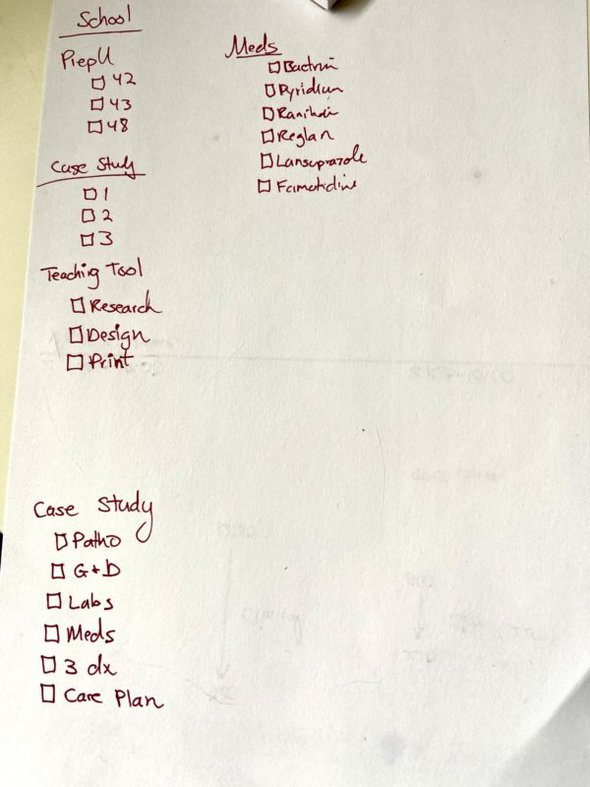 School
PrepU
☐ 42
☐ 43
☐ 48
Case Study
☐ 1
☐ 2
☐ 3
Teaching Tool
☐ Research
☐ Design
☐ Print
Meds
☐ Bactrim
☐ Pyridium
☐ Ranitidine
☐ Reglan
☐ Lansoprazole
☐ Famotidine
Case Study
☐ Patho
☐ G+D
☐ Labs
☐ Meds
☐ 3 dx
☐ Care Plan